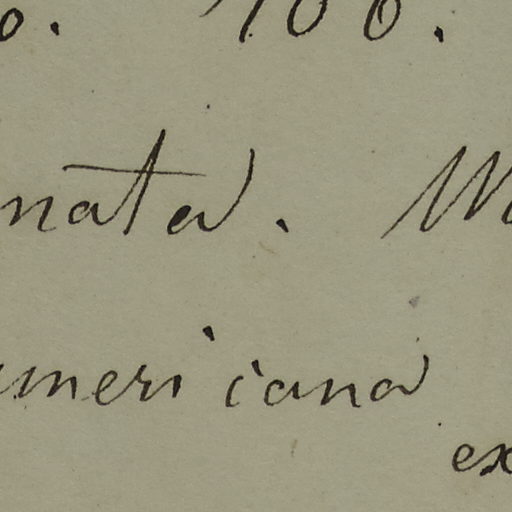 o. 100.
nata. M
americana
ex